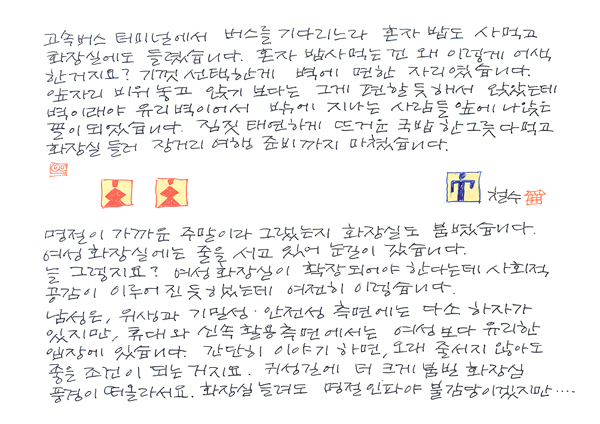 고속버스 터미널에서 버스를 기다리느라 혼자 밥도 사먹고
화장실에도 들렀습니다. 혼자 밥사먹는건 왜 이렇게 어색
한거지요? 기껏 선택한게 벽에 편한 자리였습니다.
앞자리 비워 놓고 앉기 보다는 그게 편할 듯 해서 앉았는데
벽이래야 유리벽이어서 밖에 지나는 사람들 앞에 나앉은
꼴이 되었습니다. 짐짓 태연하게 뜨거운 국밥 한그릇 다먹고
화장실 들러 장거리 여행 준비까지 마쳤습니다.
철수
명절이 가까운 주말이라 그랬는지 화장실도 붐볐습니다.
여성 화장실에는 줄을 서고 있어 눈길이 갔습니다.
늘 그렇지요? 여성 화장실이 확장 되어야 한다는데 사회적
공감이 이루어진 듯 했는데 여전히 이렇습니다.
남성은, 위생과 기밀성·안전성 측면에는 다소 하자가
있지만, 휴대와 신속 활용 측면에서는 여성보다 유리한
입장에 있습니다. 간단히 이야기 하면, 오래 줄서지 않아도
좋을 조건이 되는 거지요. 귀성길에 더 크게 붐빌 화장실
풍경이 떠올라서요. 화장실 들려도 명절 인파야 불감당이겠지만····